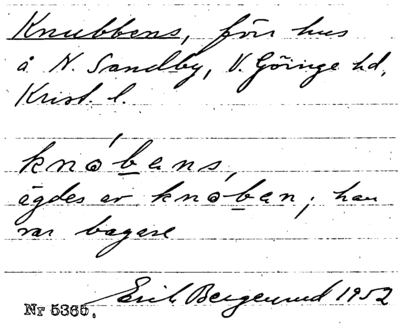 Knubbens, förr hus
å N. Sandby, V. Göinge hd,
Krist. l.
knóbans,
ägdes av knoban; han
var bagare
Nr 5365. Erik Bergelund 1952